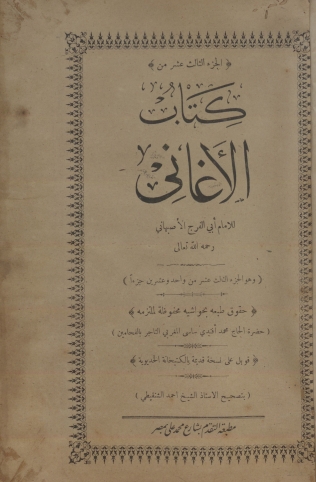 ﴿ الجزء الثالث عشر من ﴾
كتاب
الأغاني
للامام أبي الفرج الأصبهاني
رحمه الله تعالى
( وهو الجزء الثالث عشر من واحد وعشرين جزءاً )
﴿ حقوق طبعه بحواشيه محفوظة للملتزمه ﴾
( حضرة الحاج محمد أفندي ساسى المغربي التاجر بالفحامين )
﴿ قوبل على نسخة قديمة بالكتبخانة الخديوية ﴾
( بتصحيح الاستاذ الشيخ احمد الشنقيطي )
مطبعة التقدم بشارع محمد على بمصر